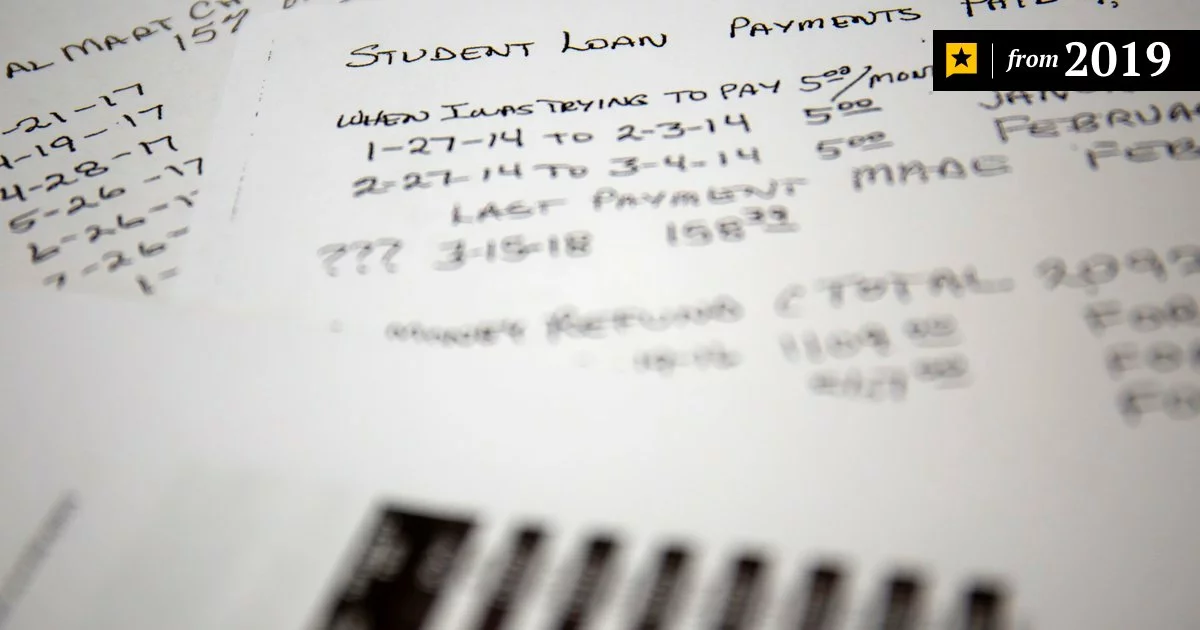 AL MART CH
15%
-21-17
4-19-17
4-28-17
5-26-17
6-26-1
7-26-
1-
STUDENT LOAN PAYMENTS PAID
WHEN I WAS TRYING TO PAY 500/MON
1-27-14 TO 2-3-14 500 JAN
2-27-14 TO 3-4-14 500 FEBRUA
LAST PAYMENT MADE FEB
??? 3-15-18 158
MONEY REFUND TOTAL 2093
1109 FOR
FO
FO
from 2019